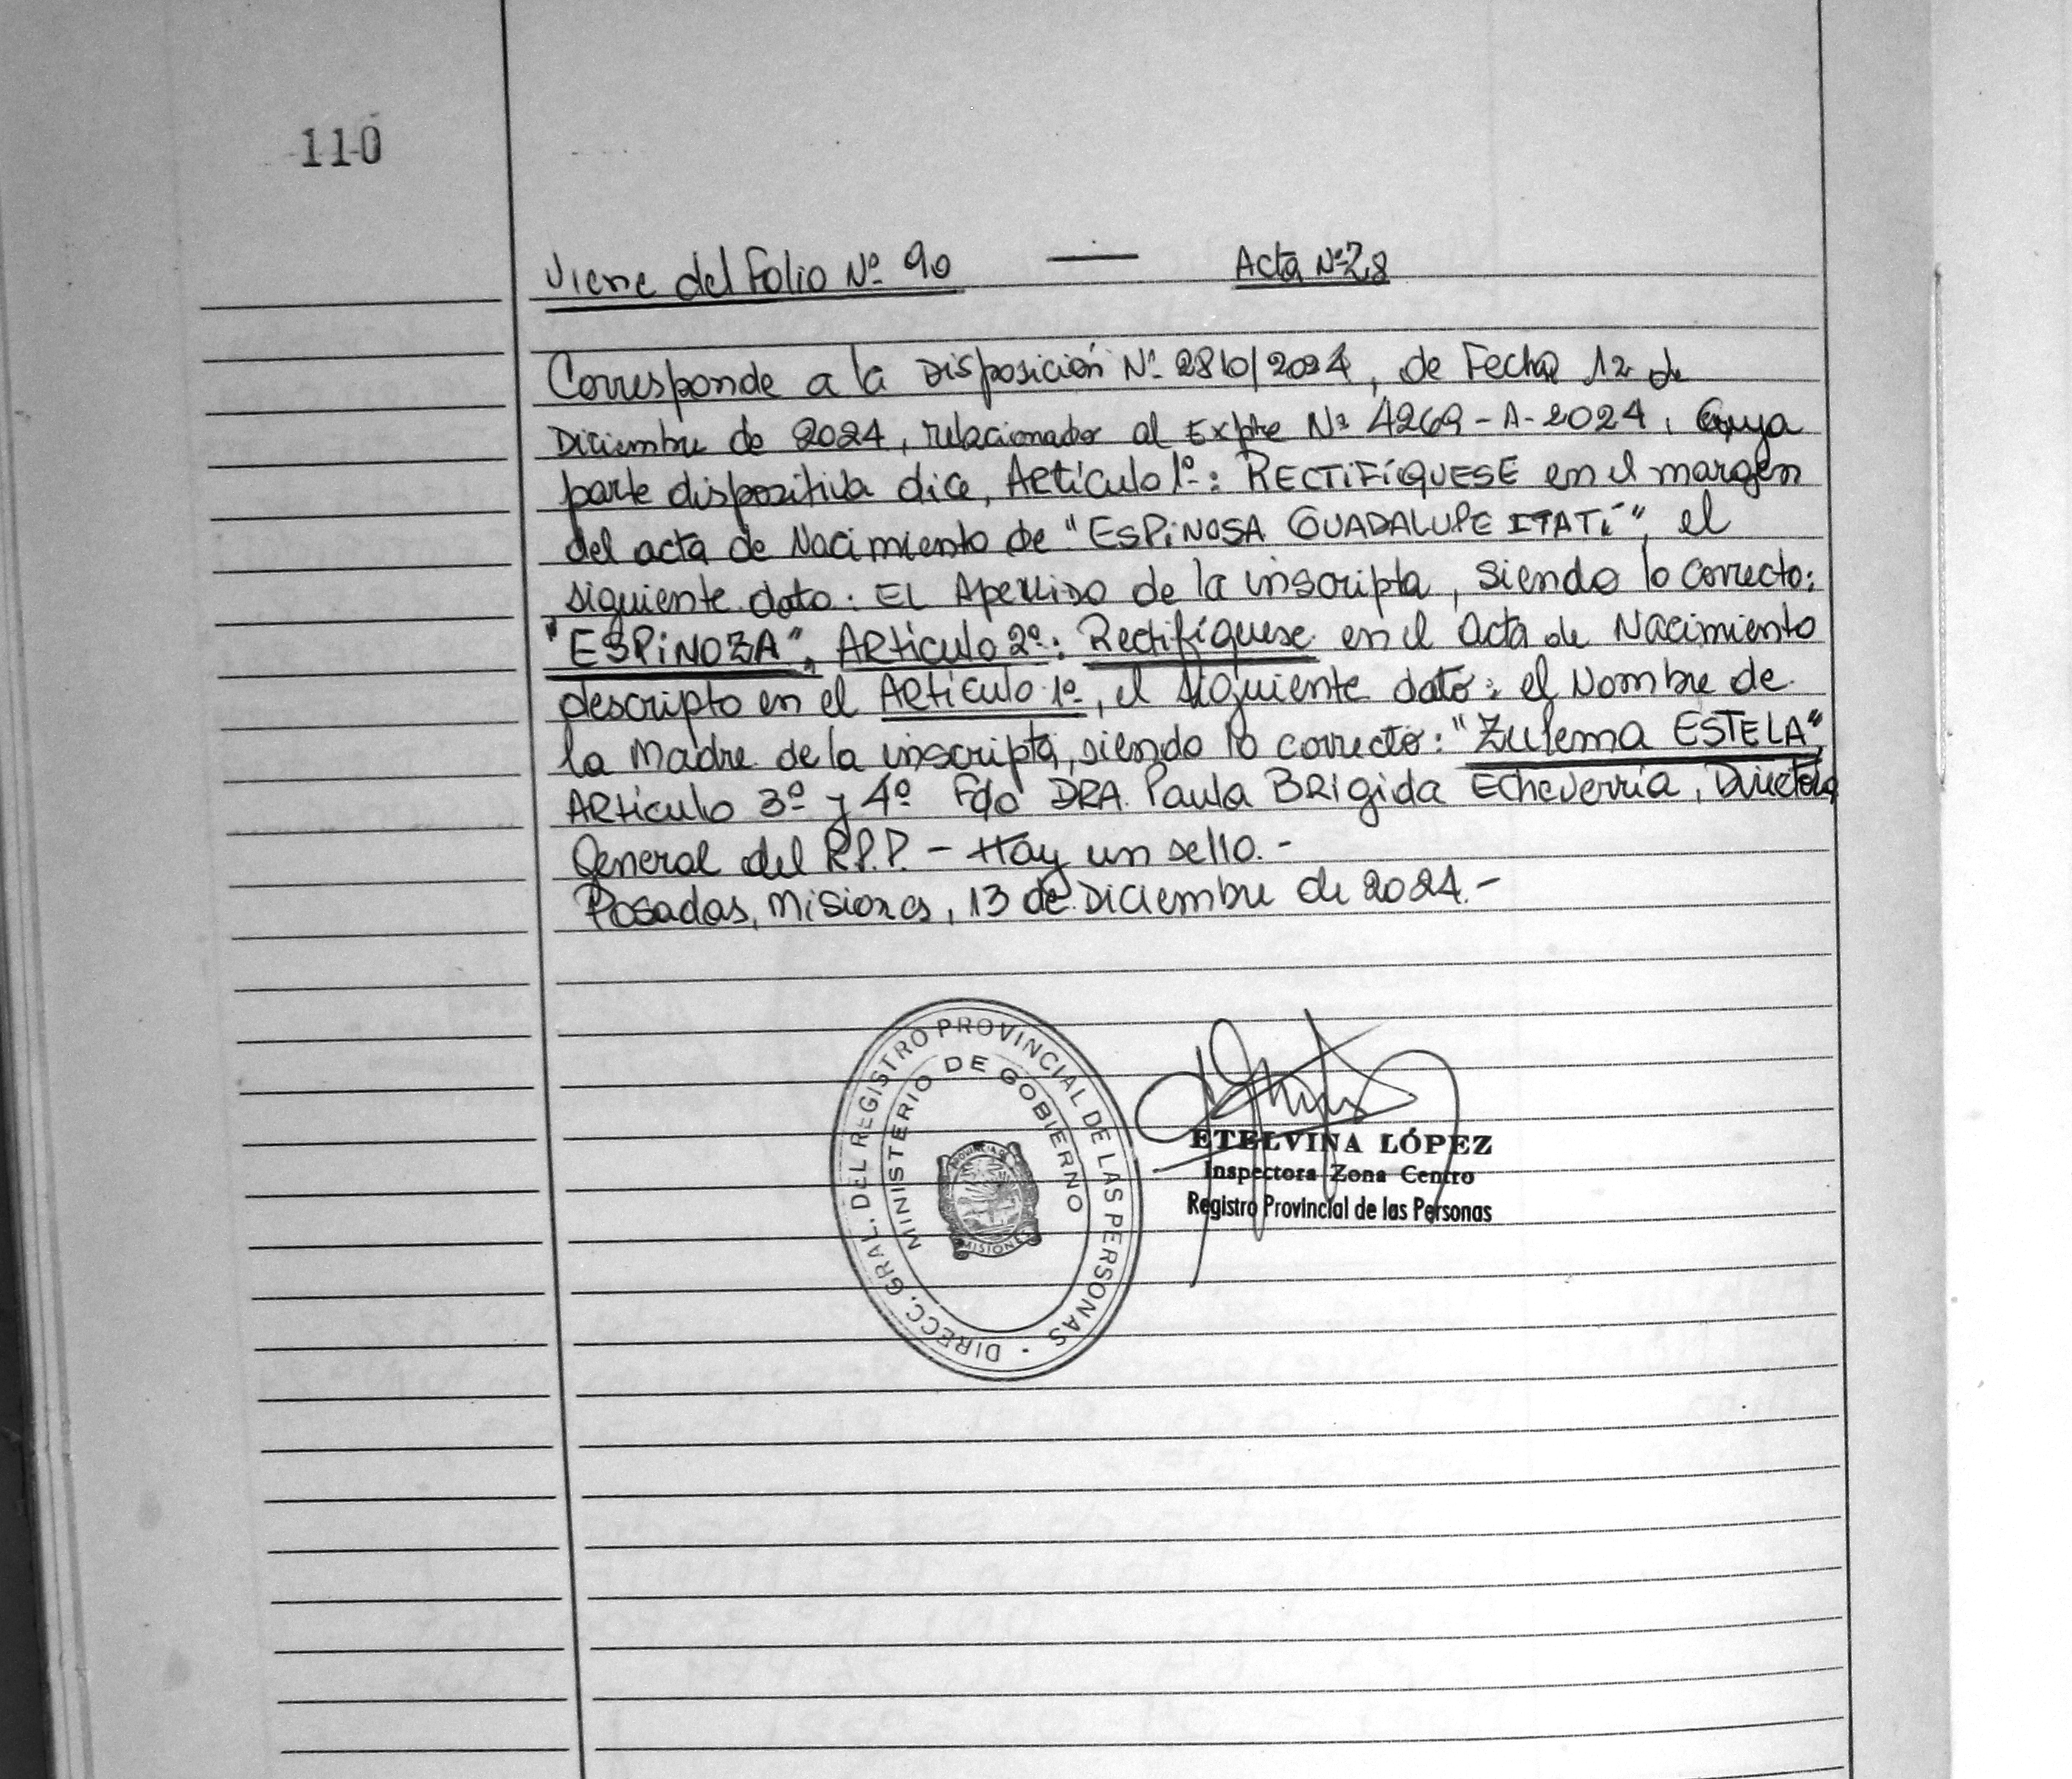 110
Viene del Folio Nº 90 — Acta Nº 28
Corresponde a la Disposición Nº 2810/2024, de Fecha 12 de
Diciembre de 2024, relacionador al Expte Nº 4269-A-2024, Cuya
parte dispositiva dice, Artículo 1º: RECTIFÍQUESE en el margen
del acta de Nacimiento de "ESPINOSA GUADALUPE ITATÍ", el
siguiente dato: El Apellido de la inscripta, siendo lo correcto:
"ESPINOZA", Artículo 2º: Rectifíquese en el acta de Nacimiento
descripto en el Artículo 1º, el siguiente dato: el Nombre de
la Madre de la inscripta, siendo lo correcto: "Zulema ESTELA"
Artículo 3º y 4º Fdo DRA. Paula BRigida Echeverría, Directora
General del R.P.P. - Hay un sello.-
Posadas, Misiones, 13 de Diciembre de 2024.-
DIRECC. GRAL. DEL REGISTRO PROVINCIAL DE LAS PERSONAS
MINISTERIO DE GOBIERNO
PROVINCIA DE
MISIONES
ETELVINA LÓPEZ
Inspectora Zona Centro
Registro Provincial de las Personas